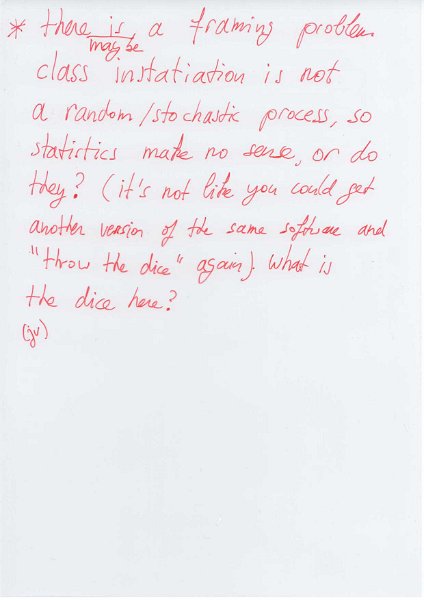 * there is a framing problem
maybe
class instatiation is not
a random/stochastic process, so
statistics make no sense, or do
they? (it's not like you could get
another version of the same software and
"throw the dice" again). What is
the dice here?
(jv)